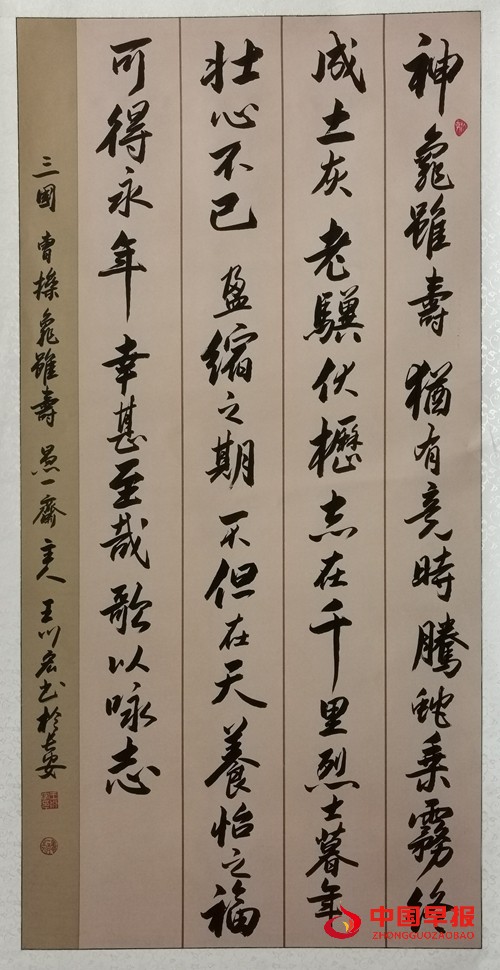 神龜雖壽猶有竟時騰蛇乘霧終
成土灰老驥伏櫪志在千里烈士暮年
壮心不已盈縮之期不但在天養怡之福
可得永年幸甚至哉歌以咏志
三國曹操龜雖壽愚一齋主人王川宏书於长安
中国早报
ZHONGGUOZAOBAO